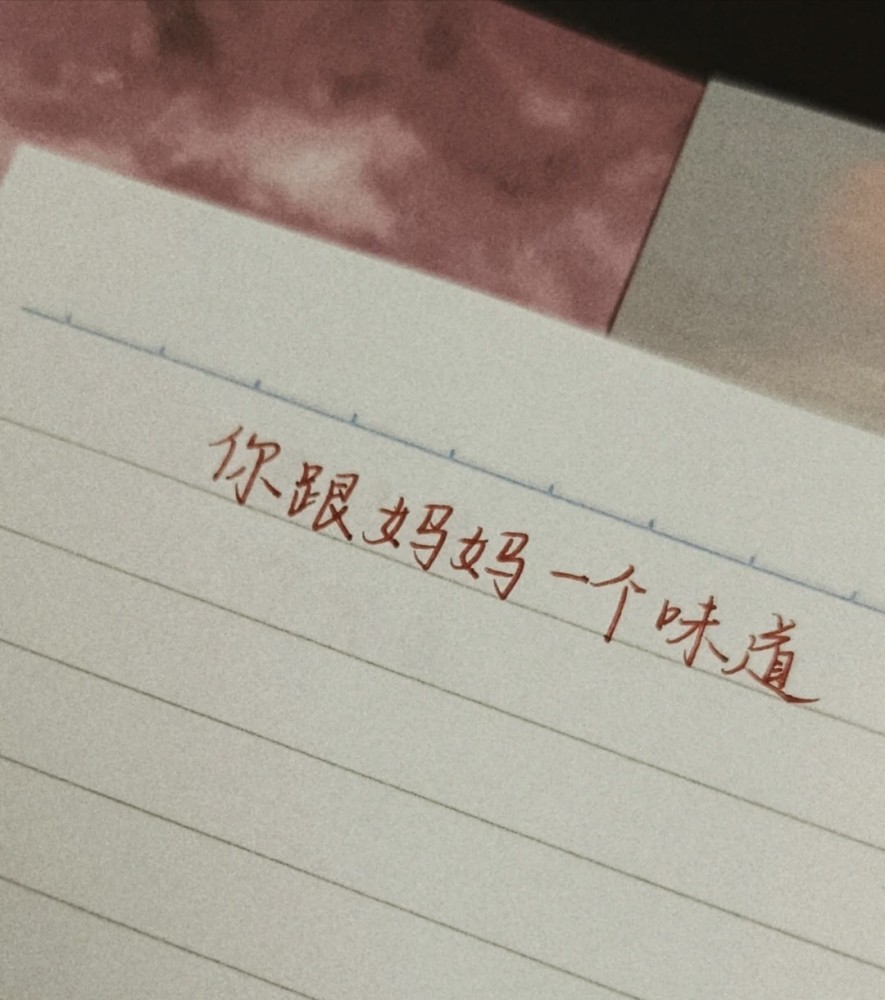 你跟妈妈一个味道